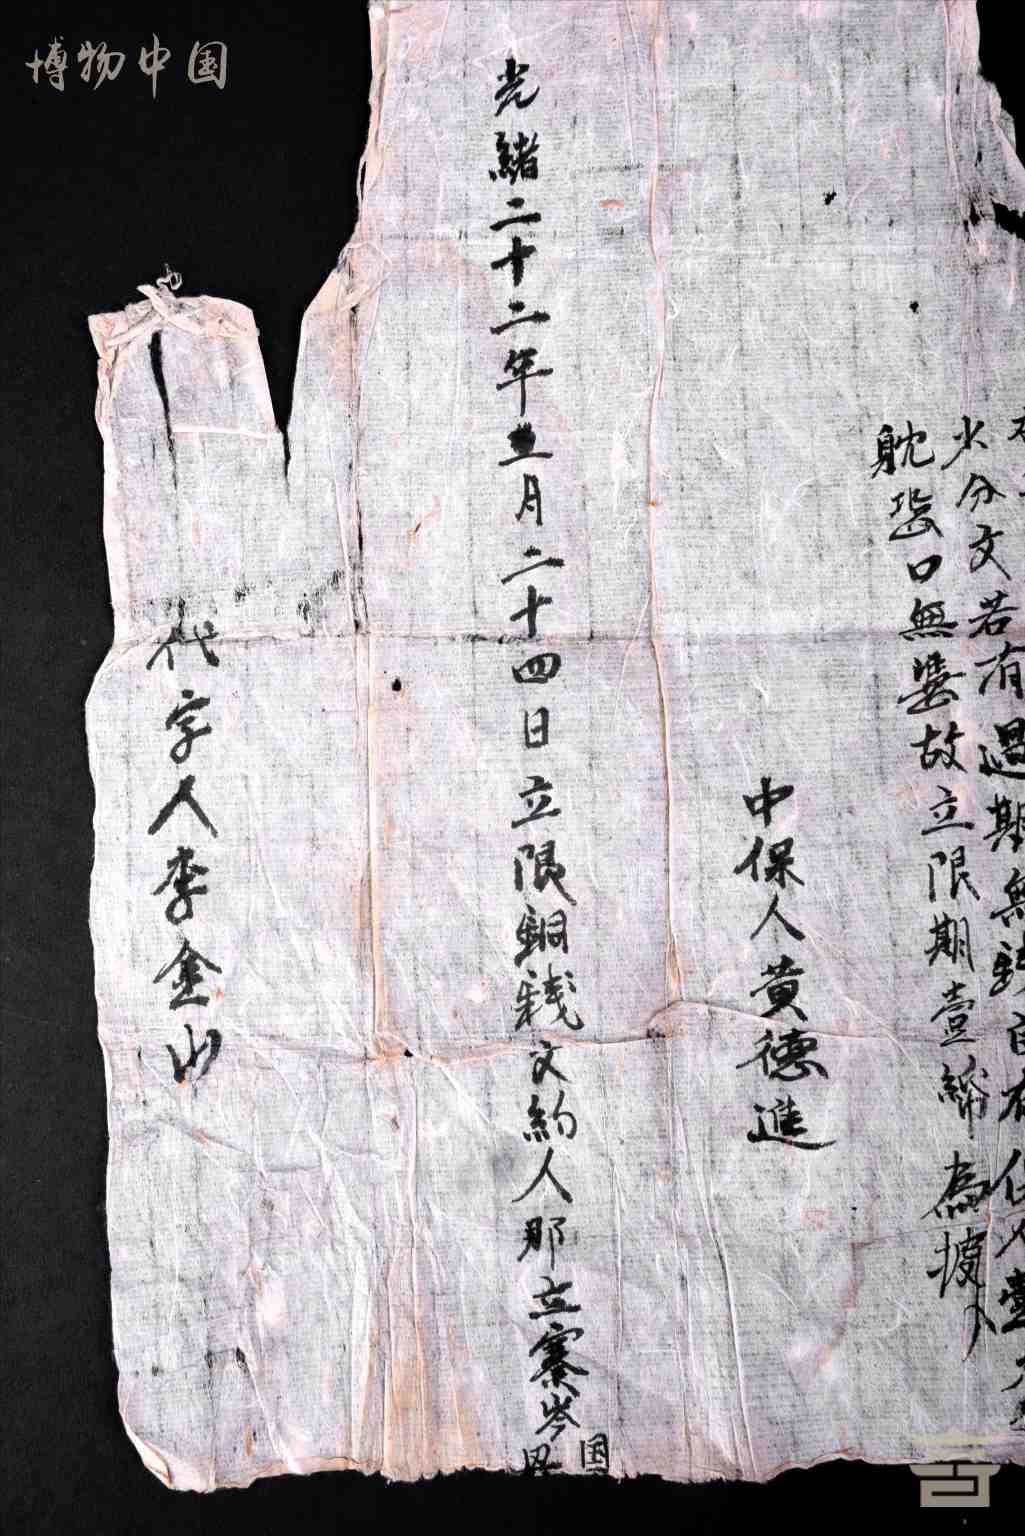 博物中国
少分文若有過期無錢自有保人壹
躭恐口無憑故立限期壹紙為據
中保人黄德進
光緒二十二年五月二十四日立限銅錢文約人那立寨岑
国
代字人李金山